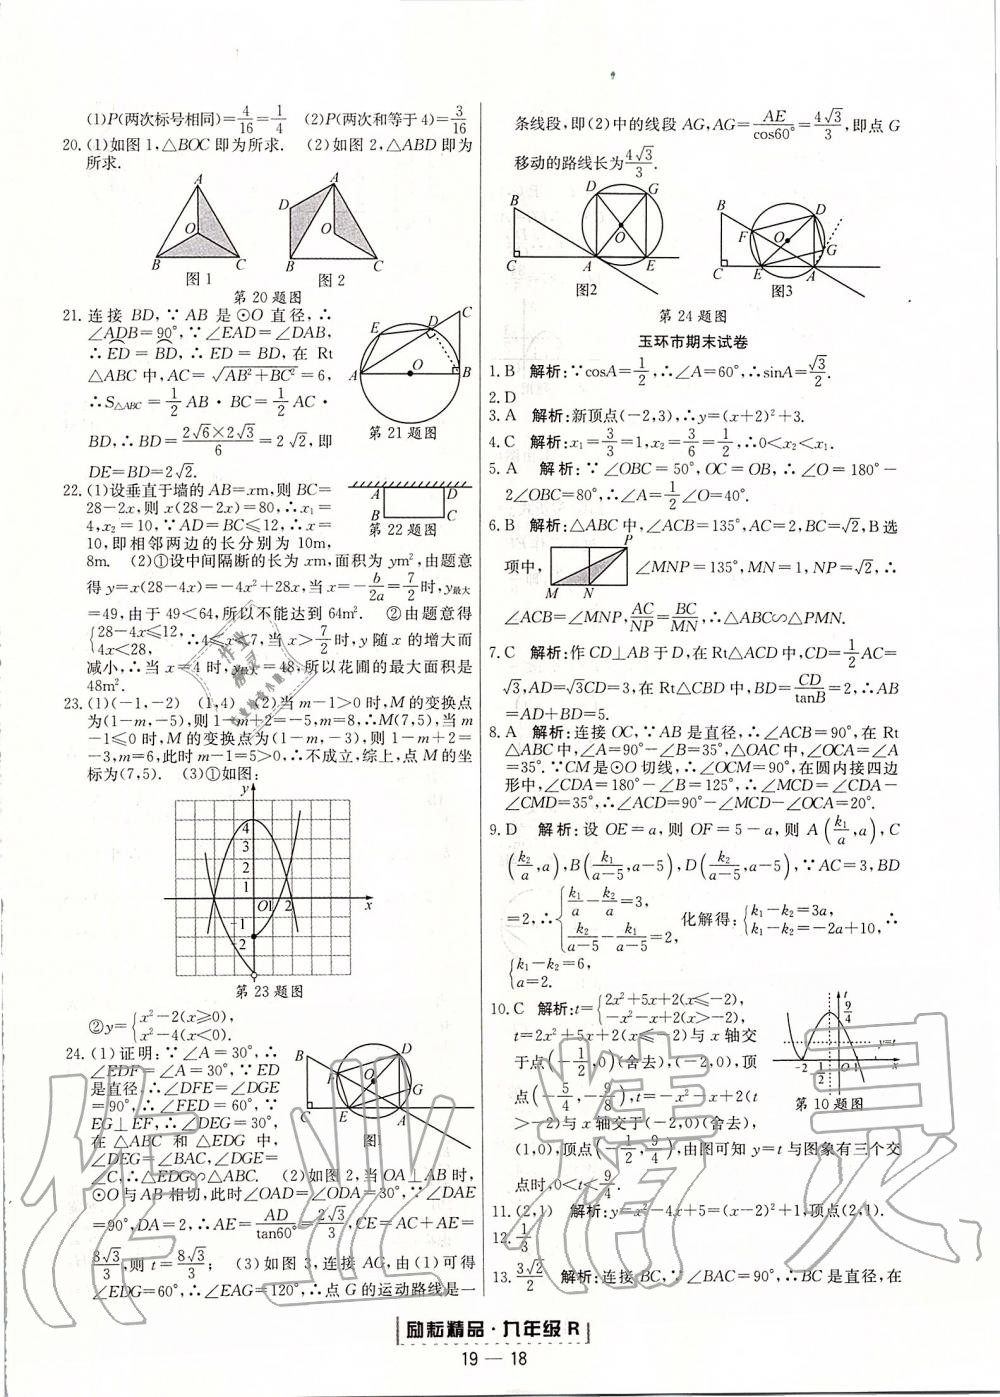 (1)P(两次标号相同)=4/16=1/4　(2)P(两次和等于4)=3/16
20.(1)如图1,△BOC即为所求.　(2)如图2,△ABD即为
所求.
A
O
B
C
图1
A
D
O
B
C
图2
第20题图
21. 连接 BD,∵AB 是⊙O 直径,∴
∠ADB=90°,∵∠EAD=∠DAB,
∴ED=BD,∴ED=BD,在 Rt
△ABC中,AC=√(AB²+BC²)=6,
∴S△ABC=1/2 AB·BC=1/2 AC·
BD,∴BD=2√6×2√3/6=2√2,即
DE=BD=2√2.
C
D
E
A
O
B
第21题图
22.(1)设垂直于墙的AB=xm,则BC=
28-2x,则x(28-2x)=80,∴x₁=
4,x₂=10,∵AD=BC≤12,∴x=
10,即相邻两边的长分别为10m,
A
D
B
C
第22题图
8m.　(2)①设中间隔断的长为xm,面积为ym²,由题意
得y=x(28-4x)=-4x²+28x,当x=-b/2a=7/2时,y最大
=49,由于49<64,所以不能达到64m².　②由题意得
{28-4x≤12,
4x<28,
∴4≤x<7,当x>7/2时,y随x的增大而
减小,∴当x=4时,y最大=48,所以花圃的最大面积是
48m².
23.(1)(-1,-2)　(1,4)　(2)当m-1>0时,M的变换点
为(1-m,-5),则1-m+2=-5,m=8,∴M(7,5),当m
-1≤0时,M的变换点为(1-m,-3),则1-m+2=
-3,m=6,此时m-1=5>0,∴不成立,综上,点M的坐
标为(7,5).　(3)①如图:
y
4
3
2
1
O
1
2
x
-1
-2
第23题图
②y={x²-2(x≥0),
x²-4(x<0).
24.(1)证明:∵∠A=30°,∴
∠EDF=∠A=30°,∵ED
是直径,∴∠DFE=∠DGE
=90°,∴∠FED=60°,∵
EG⊥EF,∴∠DEG=30°,
在△ABC和△EDG中,
∠DEG=∠BAC,∠DGE=
∠C,∴△EDG∽△ABC.　(2)如图2,当OA⊥AB时,
B
D
F
O
G
C
E
A
图1
⊙O与AB相切,此时∠OAD=∠ODA=30°,∵∠DAE
=90°,DA=2,∴AE=AD/tan60°=2√3/3,CE=AC+AE=
8√3/3,则t=8√3/3;　(3)如图3,连接AG,由(1)可得
∠EDG=60°,∴∠EAG=120°,∴点G的运动路线是一
条线段,即(2)中的线段AG,AG=AE/cos60°=4√3/3,即点G
移动的路线长为4√3/3.
D
G
B
O
C
A
E
图2
B
D
F
O
G
C
E
A
图3
第24题图
玉环市期末试卷
1.B　解析:∵cosA=1/2,∴∠A=60°,∴sinA=√3/2.
2.D
3.A　解析:新顶点(-2,3),∴y=(x+2)²+3.
4.C　解析:x₁=3/3=1,x₂=3/6=1/2,∴0<x₂<x₁.
5.A　解析:∵∠OBC=50°,OC=OB,∴∠O=180°-
2∠OBC=80°,∴∠A=1/2∠O=40°.
6.B　解析:△ABC中,∠ACB=135°,AC=2,BC=√2,B选
项中,
P
M
N
∠MNP=135°,MN=1,NP=√2,∴
∠ACB=∠MNP,AC/NP=BC/MN,∴△ABC∽△PMN.
7.C　解析:作CD⊥AB于D,在Rt△ACD中,CD=1/2AC=
√3,AD=√3CD=3,在Rt△CBD中,BD=CD/tanB=2,∴AB
=AD+BD=5.
8.A　解析:连接OC,∵AB是直径,∴∠ACB=90°,在Rt
△ABC中,∠A=90°-∠B=35°,△OAC中,∠OCA=∠A
=35°.∵CM是⊙O切线,∴∠OCM=90°,在圆内接四边
形中,∠CDA=180°-∠B=125°,∴∠MCD=∠CDA-
∠CMD=35°,∴∠ACD=90°-∠MCD-∠OCA=20°.
9.D　解析:设OE=a,则OF=5-a,则A(k₁/a,a),C
(k₂/a,a),B(k₁/(a-5),a-5),D(k₂/(a-5),a-5),∵AC=3,BD
=2,∴{k₁/a-k₂/a=3,
k₂/(a-5)-k₁/(a-5)=2,
化解得:{k₁-k₂=3a,
k₁-k₂=-2a+10,
∴
{k₁-k₂=6,
a=2.
10.C　解析:t={2x²+5x+2(x≤-2),
-x²-x+2(x>-2),
t=2x²+5x+2(x≤-2)与x轴交
于点(-1/2,0)(舍去),(-2,0),顶
点(-5/4,-9/8)(舍去),t=-x²-x+2(t
>-2)与x轴交于(-2,0)(舍去),
(1,0),顶点(-1/2,9/4),由图可知y=t与图象有三个交
点时,0<t<9/4.
t
9/4
y=t
-2
-1/2
O
1
第10题图
11.(2,1)　解析:y=x²-4x+5=(x-2)²+1,顶点(2,1).
12.1/3
13.3√2/2　解析:连接BC,∵∠BAC=90°,∴BC是直径,在
励耘精品·九年级R
19—18
作业精灵